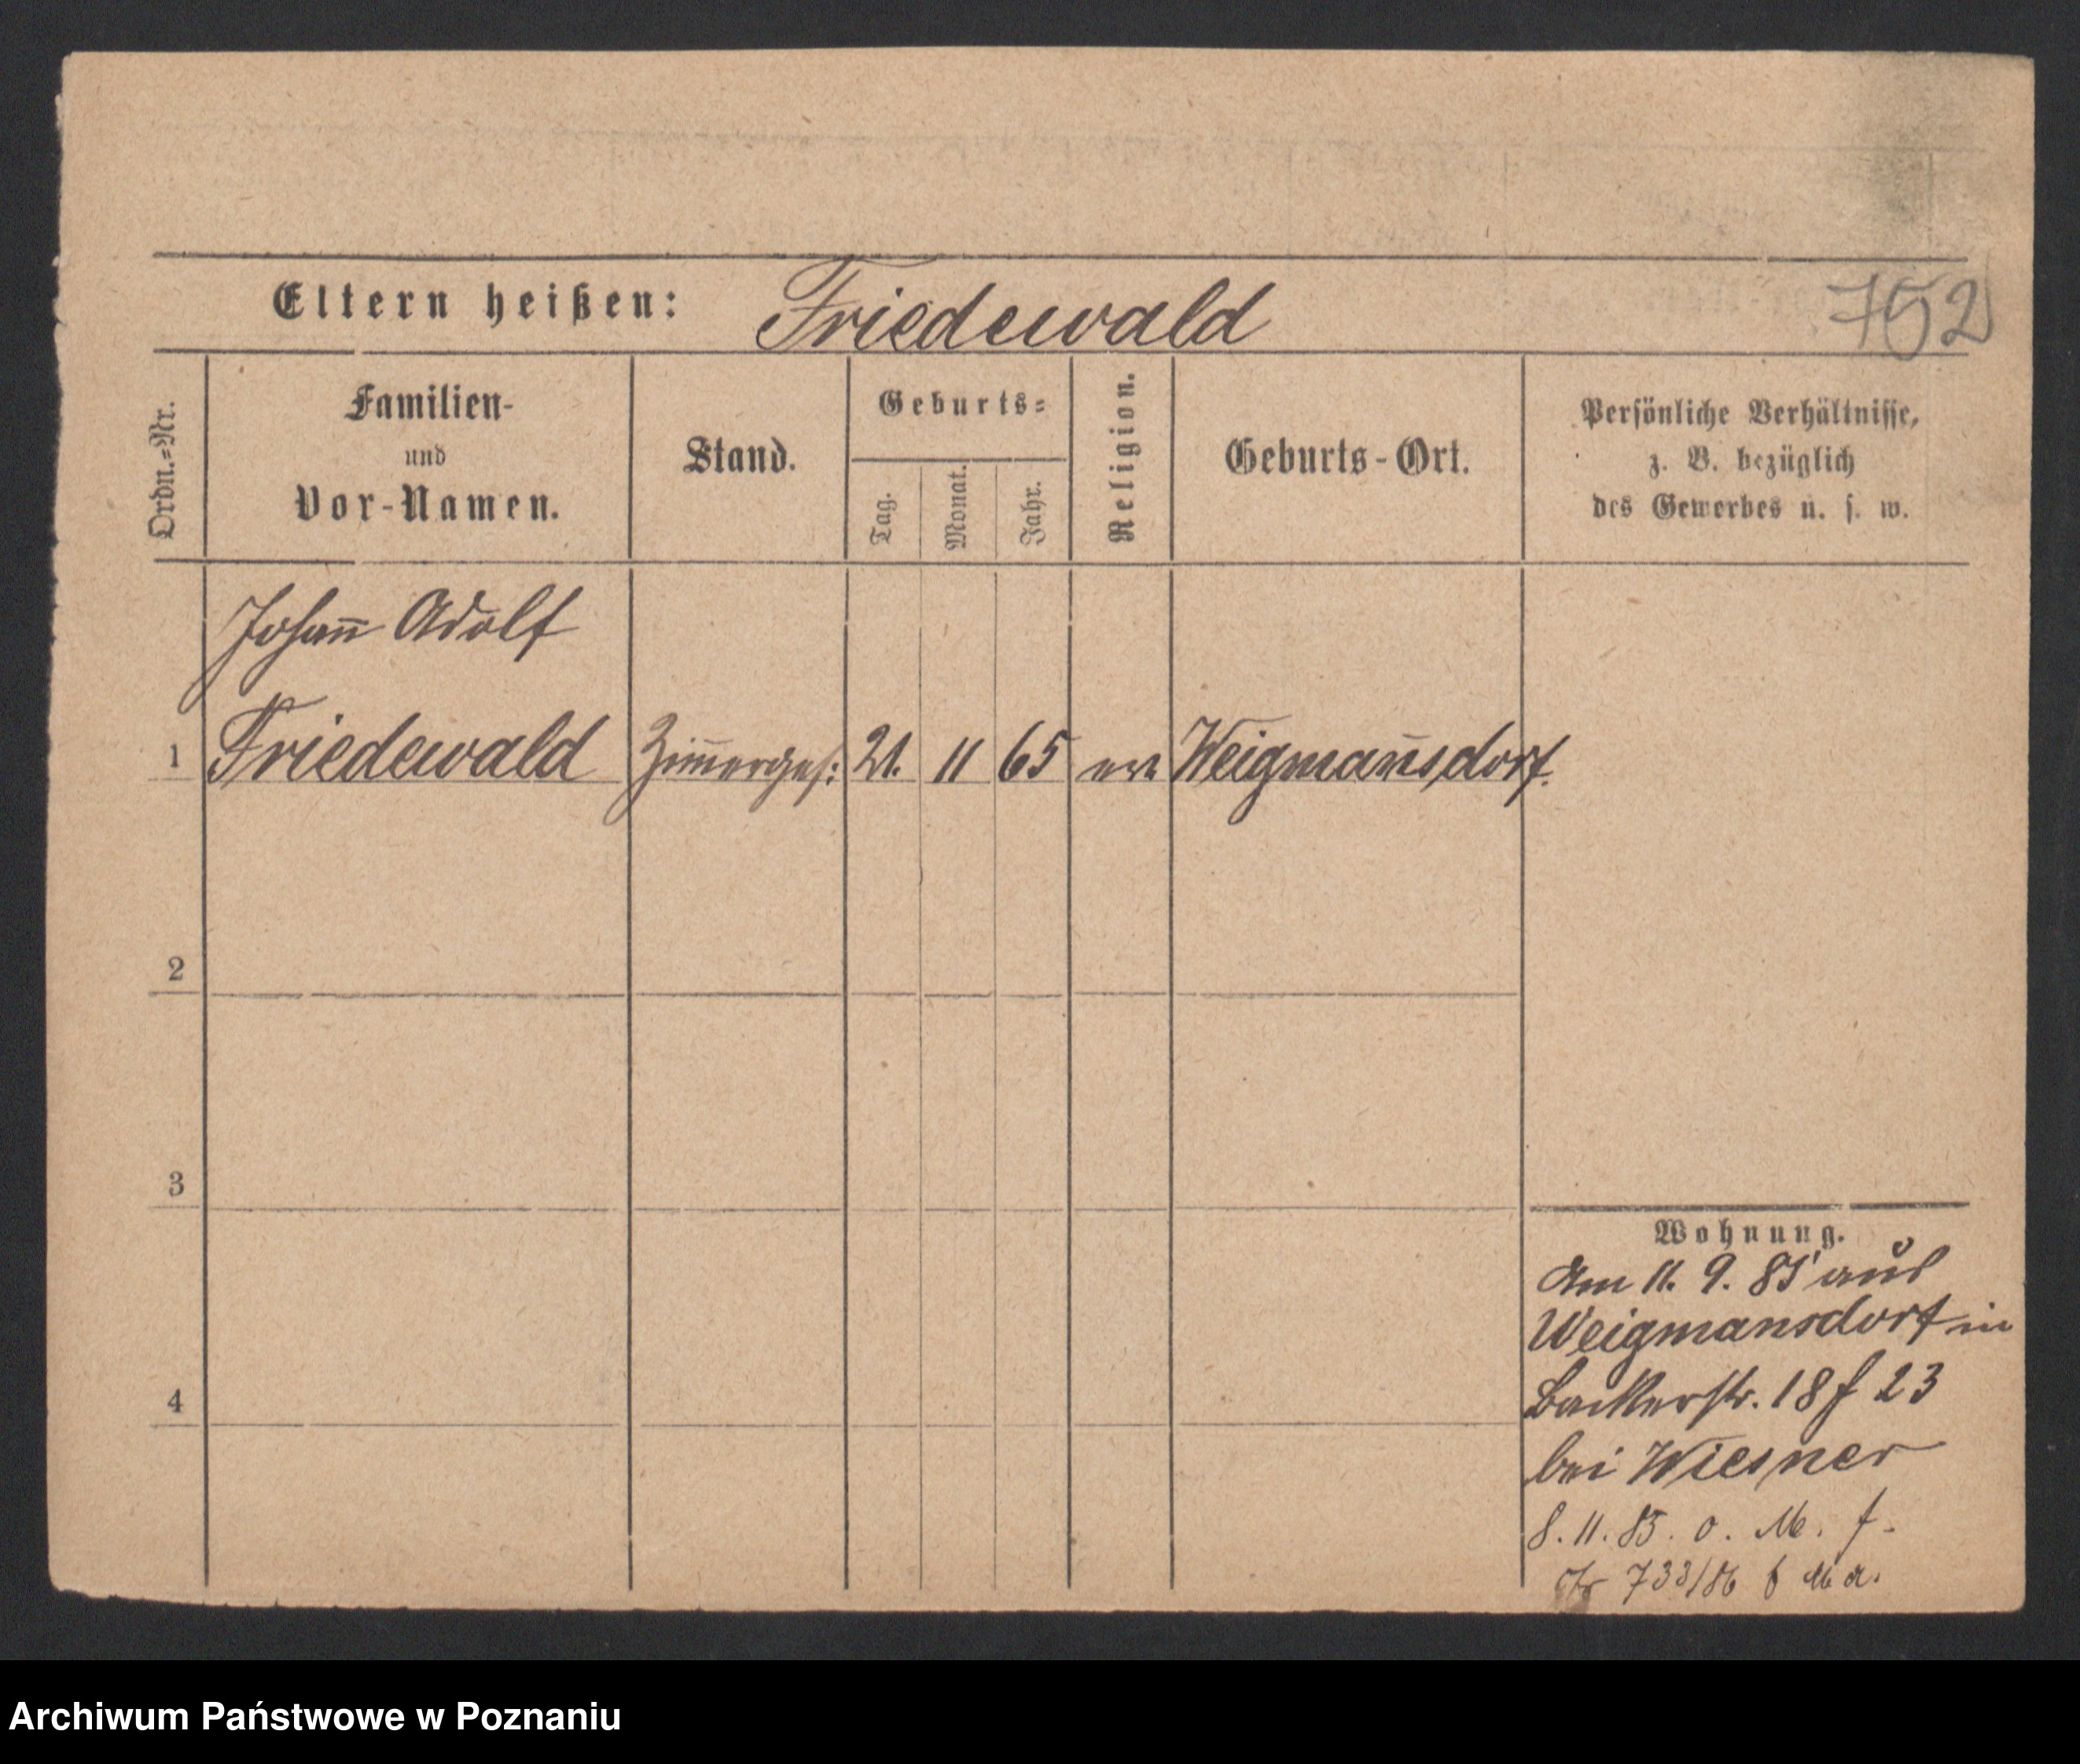 Eltern heißen: Friedewald 752
Ordn.=Nr.
Familien-
und
Vor-Namen.
Stand.
Geburts=
Tag.
Monat.
Jahr.
Religion.
Geburts-Ort.
Persönliche Verhältnisse,
z. B. bezüglich
des Gewerbes u. s. w.
Johan̄ Adolf
1 Friedewald Zim̄erges: 21. 11 65 Weigman̄sdorf.
2
3
4
Wohnung.
Am 11. 9. 85 aus
Weigmansdorf in
Backerstr. 18 f 23
bei Wiesner
8. 11. 85. o. M. f.
733/86
Archiwum Państwowe w Poznaniu